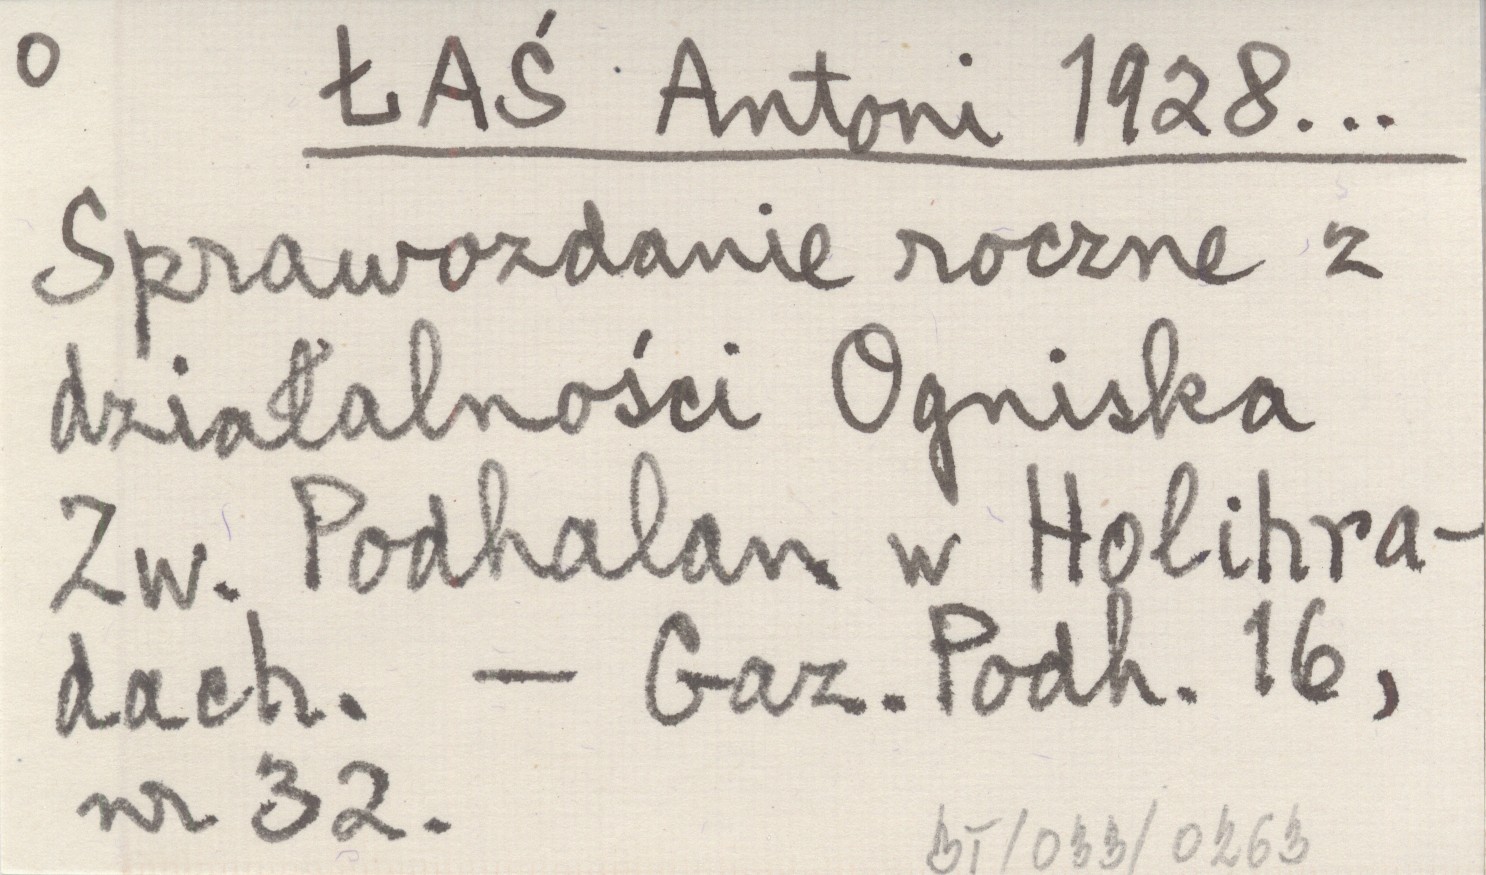 o ŁAŚ Antoni 1928...
Sprawozdanie roczne z
działalności Ogniska
Zw. Podhalan w Holihra-
dach. — Gaz. Podh. 16,
nr 32.
BT/033/0263